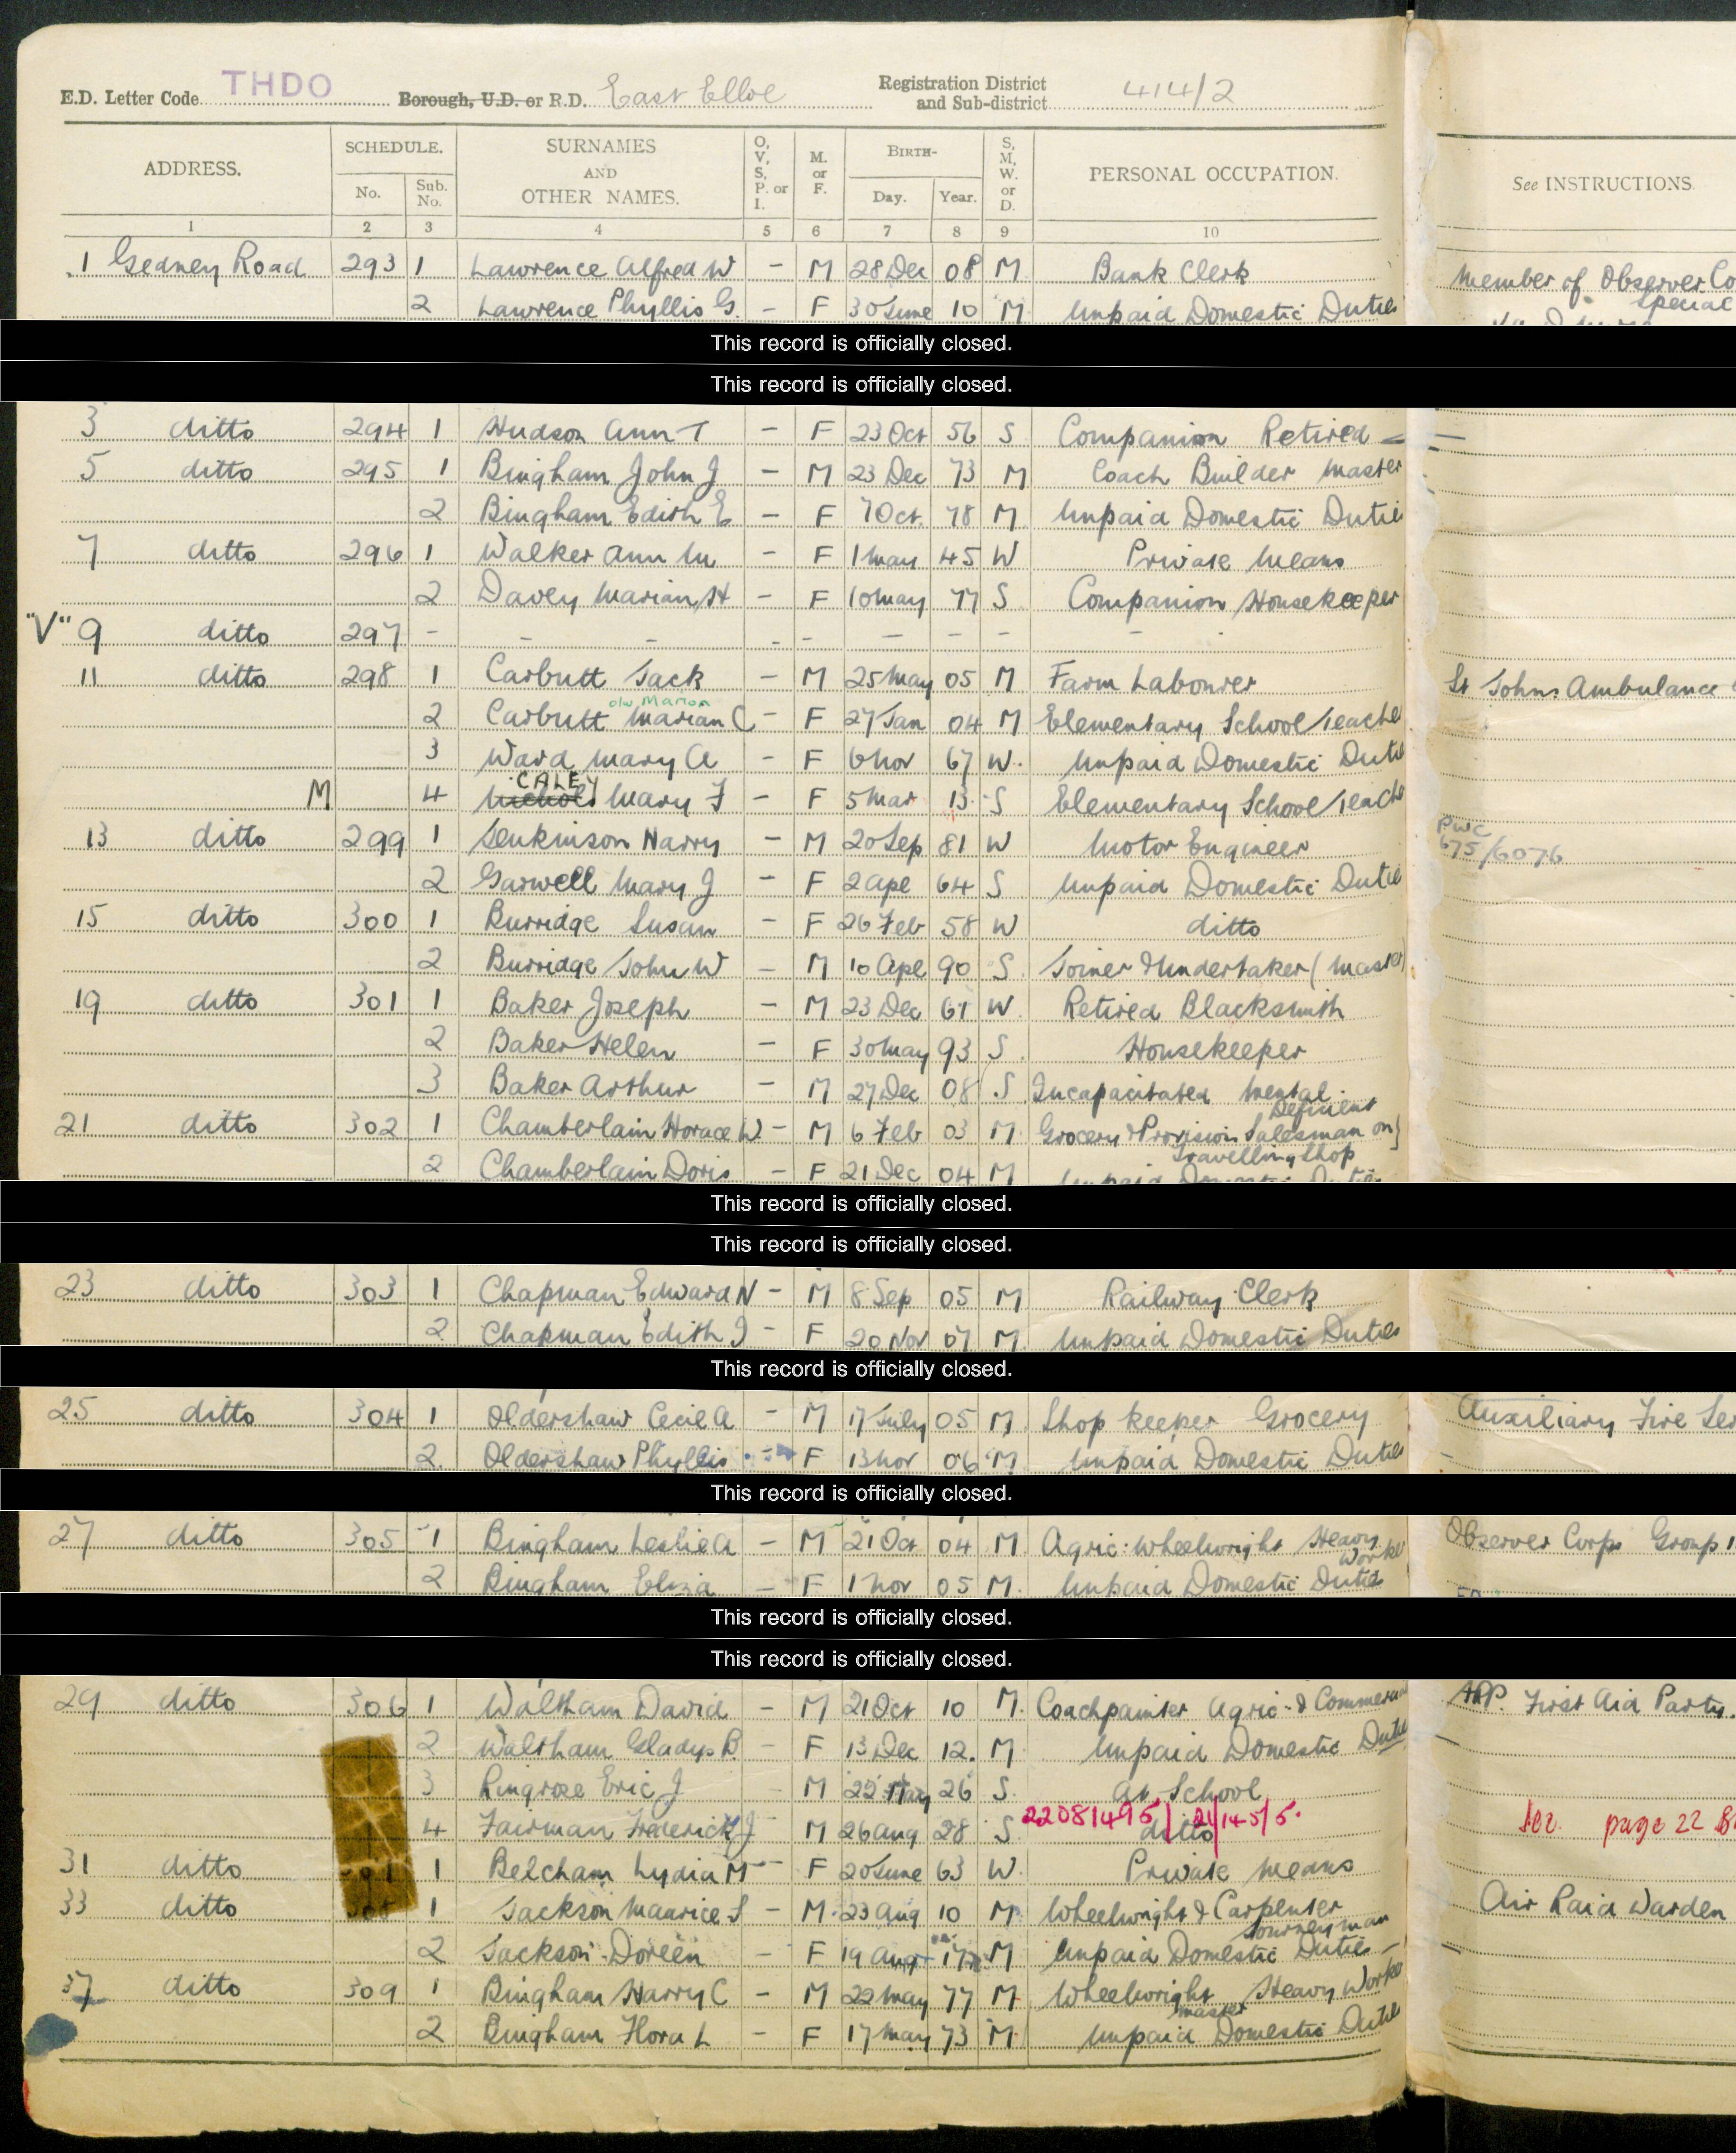 E.D. Letter Code THDO Borough, U.D. or R.D. East Elloe Registration District and Sub-district 414/2
ADDRESS. SCHEDULE. No. Sub. No. SURNAMES AND OTHER NAMES. O, V, S, P. or I. M. or F. BIRTH- Day. Year. S, M, W. or D. PERSONAL OCCUPATION. See INSTRUCTIONS.
1 2 3 4 5 6 7 8 9 10
1 Gedney Road 293 1 Lawrence Alfred W - M 28 Dec 08 M Bank Clerk Member of Observer Co
Special
2 Lawrence Phyllis G. - F 30 June 10 M Unpaid Domestic Duties
This record is officially closed.
This record is officially closed.
3 ditto 294 1 Hudson Ann T - F 23 Oct 56 S Companion Retired -
5 ditto 295 1 Bingham John J - M 23 Dec 73 M Coach Builder Master
2 Bingham Edith E - F 7 Oct. 78 M Unpaid Domestic Dutie
7 ditto 296 1 Walker Ann M - F 1 May 45 W Private Means
2 Davey Marian H - F 10 May 77 S Companion Housekeeper
"V" 9 ditto 297 - - - - - - - - -
11 ditto 298 1 Carbutt Jack - M 25 May 05 M Farm Labourer St Johns Ambulance
o/w Marion
2 Carbutt Marian C - F 27 Jan 04 M Elementary School Teache
3 Ward Mary A - F 6 Nov 67 W. Unpaid Domestic Dutie
CALEY
M 4 Nichols Mary F - F 5 Mar 13 S Elementary School Teach
13 ditto 299 1 Jenkinson Harry - M 20 Sep 81 W Motor Engineer PWC
675/6076
2 Garwell Mary J - F 2 Ape 64 S Unpaid Domestic Dutie
15 ditto 300 1 Burridge Susan - F 26 Feb 58 W ditto
2 Burridge John W - M 10 Ape 90 S Joiner & Undertaker (Master)
19 ditto 301 1 Baker Joseph - M 23 Dec 61 W Retired Blacksmith
2 Baker Helen - F 30 May 93 S Housekeeper
3 Baker Arthur - M 27 Dec 08 S Incapacitated Mental
Deficient
21 ditto 302 1 Chamberlain Horace W. - M 6 Feb 03 M Grocery & Provision Salesman on}
Travelling Shop
2 Chamberlain Doris - F 21 Dec 04 M Unpaid Domestic Duties
This record is officially closed.
This record is officially closed.
23 ditto 303 1 Chapman Edward N - M 8 Sep 05 M Railway Clerk
2 Chapman Edith J - F 20 Nov 07 M Unpaid Domestic Duties
This record is officially closed.
25 ditto 304 1 Oldershaw Cecil A - M 17 July 05 M Shop keeper Grocery Auxiliary Fire Ser
2 Oldershaw Phyllis - F 13 Nov 06 M Unpaid Domestic Dutie
This record is officially closed.
27 ditto 305 1 Bingham Leslie A - M 21 Oct 04 M Agric. Wheelwright Heavy Observer Corps Group 1
Worker
2 Bingham Eliza - F 1 Nov 05 M Unpaid Domestic Duties
This record is officially closed.
This record is officially closed.
29 ditto 306 1 Waltham David - M 21 Oct 10 M. Coachpainter Agric. & Commercial ARP. First Aid Party.
2 Waltham Gladys B. - F 13 Dec 12. M Unpaid Domestic Dutie
3 Ringrose Eric J - M 22 May 26 S. At School
22081495/ 21/145/5.
4 Fairman Frederick J - M 26 Aug 28 S ditto page 22
31 ditto 1 Belcham Lydia M - F 20 June 63 W Private Means
33 ditto 1 Jackson Maurice S - M 23 Aug 10 M Wheelwright & Carpenter Air Raid Warden
Journeyman
2 Jackson Doreen - F 19 Aug 17 M Unpaid Domestic Duties -
37 ditto 309 1 Bingham Harry C - M 22 May 77 M Wheelwright Heavy Worke
Master
2 Bingham Flora L - F 17 May 73 M. Unpaid Domestic Dutie